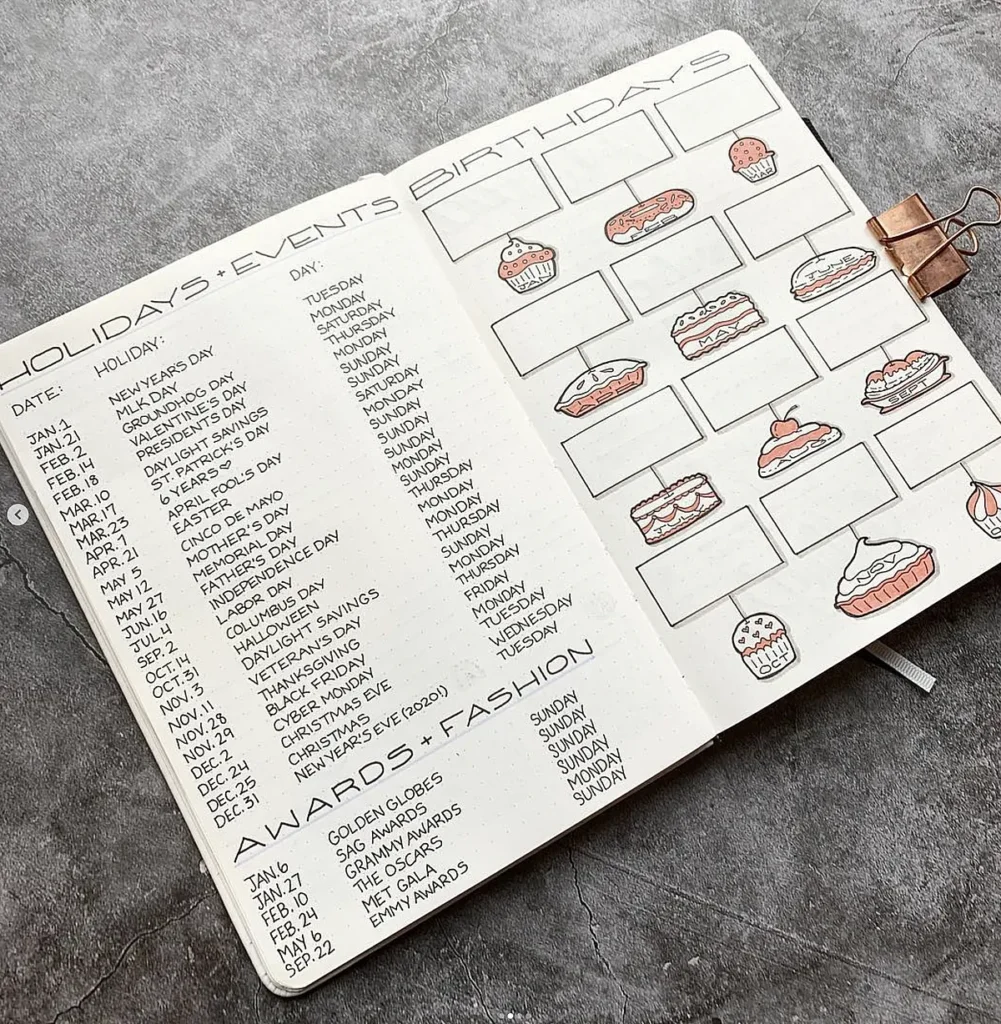 HOLIDAYS + EVENTS
DATE: HOLIDAY: DAY:
JAN.1 NEW YEARS DAY TUESDAY
JAN.21 MLK DAY MONDAY
FEB.2 GROUNDHOG DAY SATURDAY
FEB.14 VALENTINE'S DAY THURSDAY
FEB.18 PRESIDENTS DAY MONDAY
MAR.10 DAYLIGHT SAVINGS SUNDAY
MAR.17 ST. PATRICK'S DAY SUNDAY
MAR.23 6 YEARS♡ SATURDAY
APR.1 APRIL FOOL'S DAY MONDAY
APR.21 EASTER SUNDAY
MAY 5 CINCO DE MAYO SUNDAY
MAY 12 MOTHER'S DAY SUNDAY
MAY 27 MEMORIAL DAY MONDAY
JUN.16 FATHER'S DAY SUNDAY
JUL.4 INDEPENDENCE DAY THURSDAY
SEP.2 LABOR DAY MONDAY
OCT.14 COLUMBUS DAY MONDAY
OCT.31 HALLOWEEN THURSDAY
NOV.3 DAYLIGHT SAVINGS SUNDAY
NOV.11 VETERAN'S DAY MONDAY
NOV.28 THANKSGIVING THURSDAY
NOV.29 BLACK FRIDAY FRIDAY
DEC.2 CYBER MONDAY MONDAY
DEC.24 CHRISTMAS EVE TUESDAY
DEC.25 CHRISTMAS WEDNESDAY
DEC.31 NEW YEAR'S EVE (2020!) TUESDAY
AWARDS + FASHION
JAN.6 GOLDEN GLOBES SUNDAY
JAN.27 SAG AWARDS SUNDAY
FEB.10 GRAMMY AWARDS SUNDAY
FEB.24 THE OSCARS SUNDAY
MAY 6 MET GALA MONDAY
SEP.22 EMMY AWARDS SUNDAY
BIRTHDAYS
JAN
FEB
MAR
MAY
JUNE
SEPT
OCT
NOV